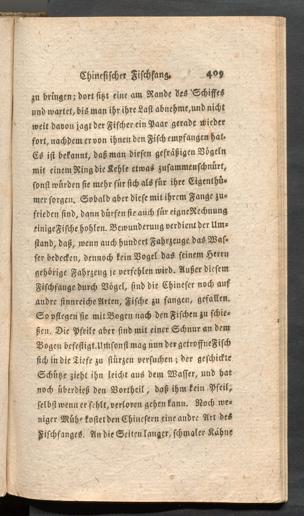 Chinesischer Fischfang. 409
zu bringen; dort sitzt eine am Rande des Schiffes
und wartet, bis man ihr ihre Last abnehme, und nicht
weit davon jagt der Fischer ein Paar gerade wieder
fort, nachdem er von ihnen den Fisch empfangen hat.
Es ist bekannt, daß man diesen gefräßigen Vögeln
mit einem Ring die Kehle etwas zusammenschnürt,
sonst würden sie mehr für sich als für ihre Eigenthü-
mer sorgen. Sobald aber diese mit ihrem Fange zu-
frieden sind, dann dürfen sie auch für eigne Rechnung
einige Fische hohlen. Bewunderung verdient der Um-
stand, daß, wenn auch hundert Fahrzeuge das Was-
ser bedecken, dennoch kein Vogel das seinem Herrn
gehörige Fahrzeug je verfehlen wird. Außer diesem
Fischfange durch Vögel, sind die Chineser noch auf
andre sinnreiche Arten, Fische zu fangen, gefallen.
So pflegen sie mit Bogen nach den Fischen zu schie-
ßen. Die Pfeile aber sind mit einer Schnur an dem
Bogen befestigt. Umsonst mag nun der getroffne Fisch
sich in die Tiefe zu stürzen versuchen; der geschickte
Schütze zieht ihn leicht aus dem Wasser, und hat
noch überdieß den Vortheil, daß ihm kein Pfeil,
selbst wenn er fehlt, verloren gehen kann. Noch we-
niger Mühe kostet den Chinesern eine andre Art des
Fischfanges. An die Seiten langer, schmaler Kähne